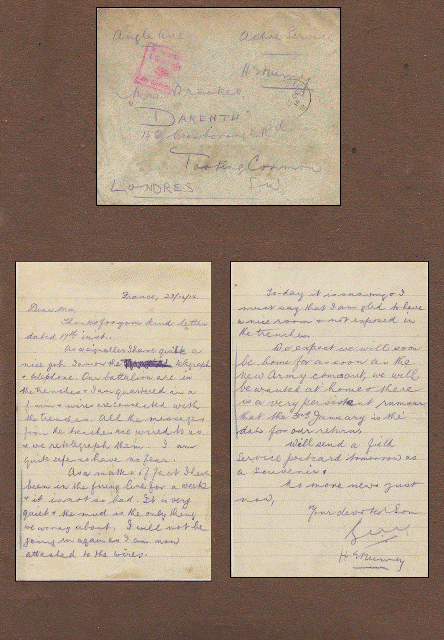 Angleterre
Active Service
Mrs
"DARENTH"
Tooting Common
LONDRES S.W.
France, 23/12/14.
Dear Ma,
Thanks for your kind letter
dated 17th inst.
As a signaller I have quite a
nice job. I am on the telegraph
& telephone. Our battalion are in
the trenches & I am quartered in a
farm & wires are connected with
the trenches. All the messages
from the trenches are wired to us
& we retelegraph them. I am
quite safe so have no fear.
As a matter of fact I have
been in the firing line for a week
& it is not so bad. It is very
quiet & the mud is the only thing
we worry about. I will not be
going in again as I am now
attached to the wires.
To-day it is snowing & I
must say that I am glad to have
a nice room & not exposed in
the trenches.
I expect we will soon
be home for as soon as the
New Army come out, we will
be wanted at home & there
is a very persistent rumour
that the 3rd January is the
date for our return.
Will send a field
service postcard tomorrow as
a souvenir.
No more news just
now,
Your devoted Son